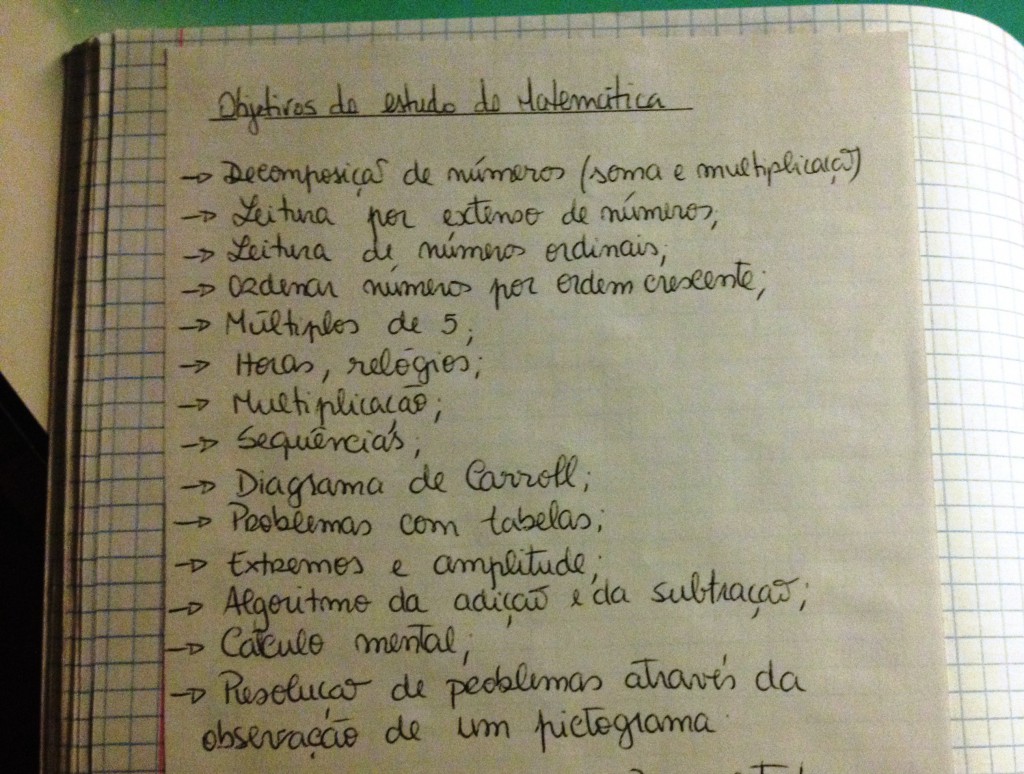 Objetivos de estudo de Matemática
→ Decomposição de números (soma e multiplicação)
→ Leitura por extenso de números;
→ Leitura de números ordinais;
→ Ordenar números por ordem crescente;
→ Múltiplos de 5;
→ Horas, relógios;
→ Multiplicação;
→ Sequências;
→ Diagrama de Carroll;
→ Problemas com tabelas;
→ Extremos e amplitude;
→ Algoritmo da adição e da subtração;
→ Cálculo mental;
→ Resolução de problemas através da
observação de um pictograma.